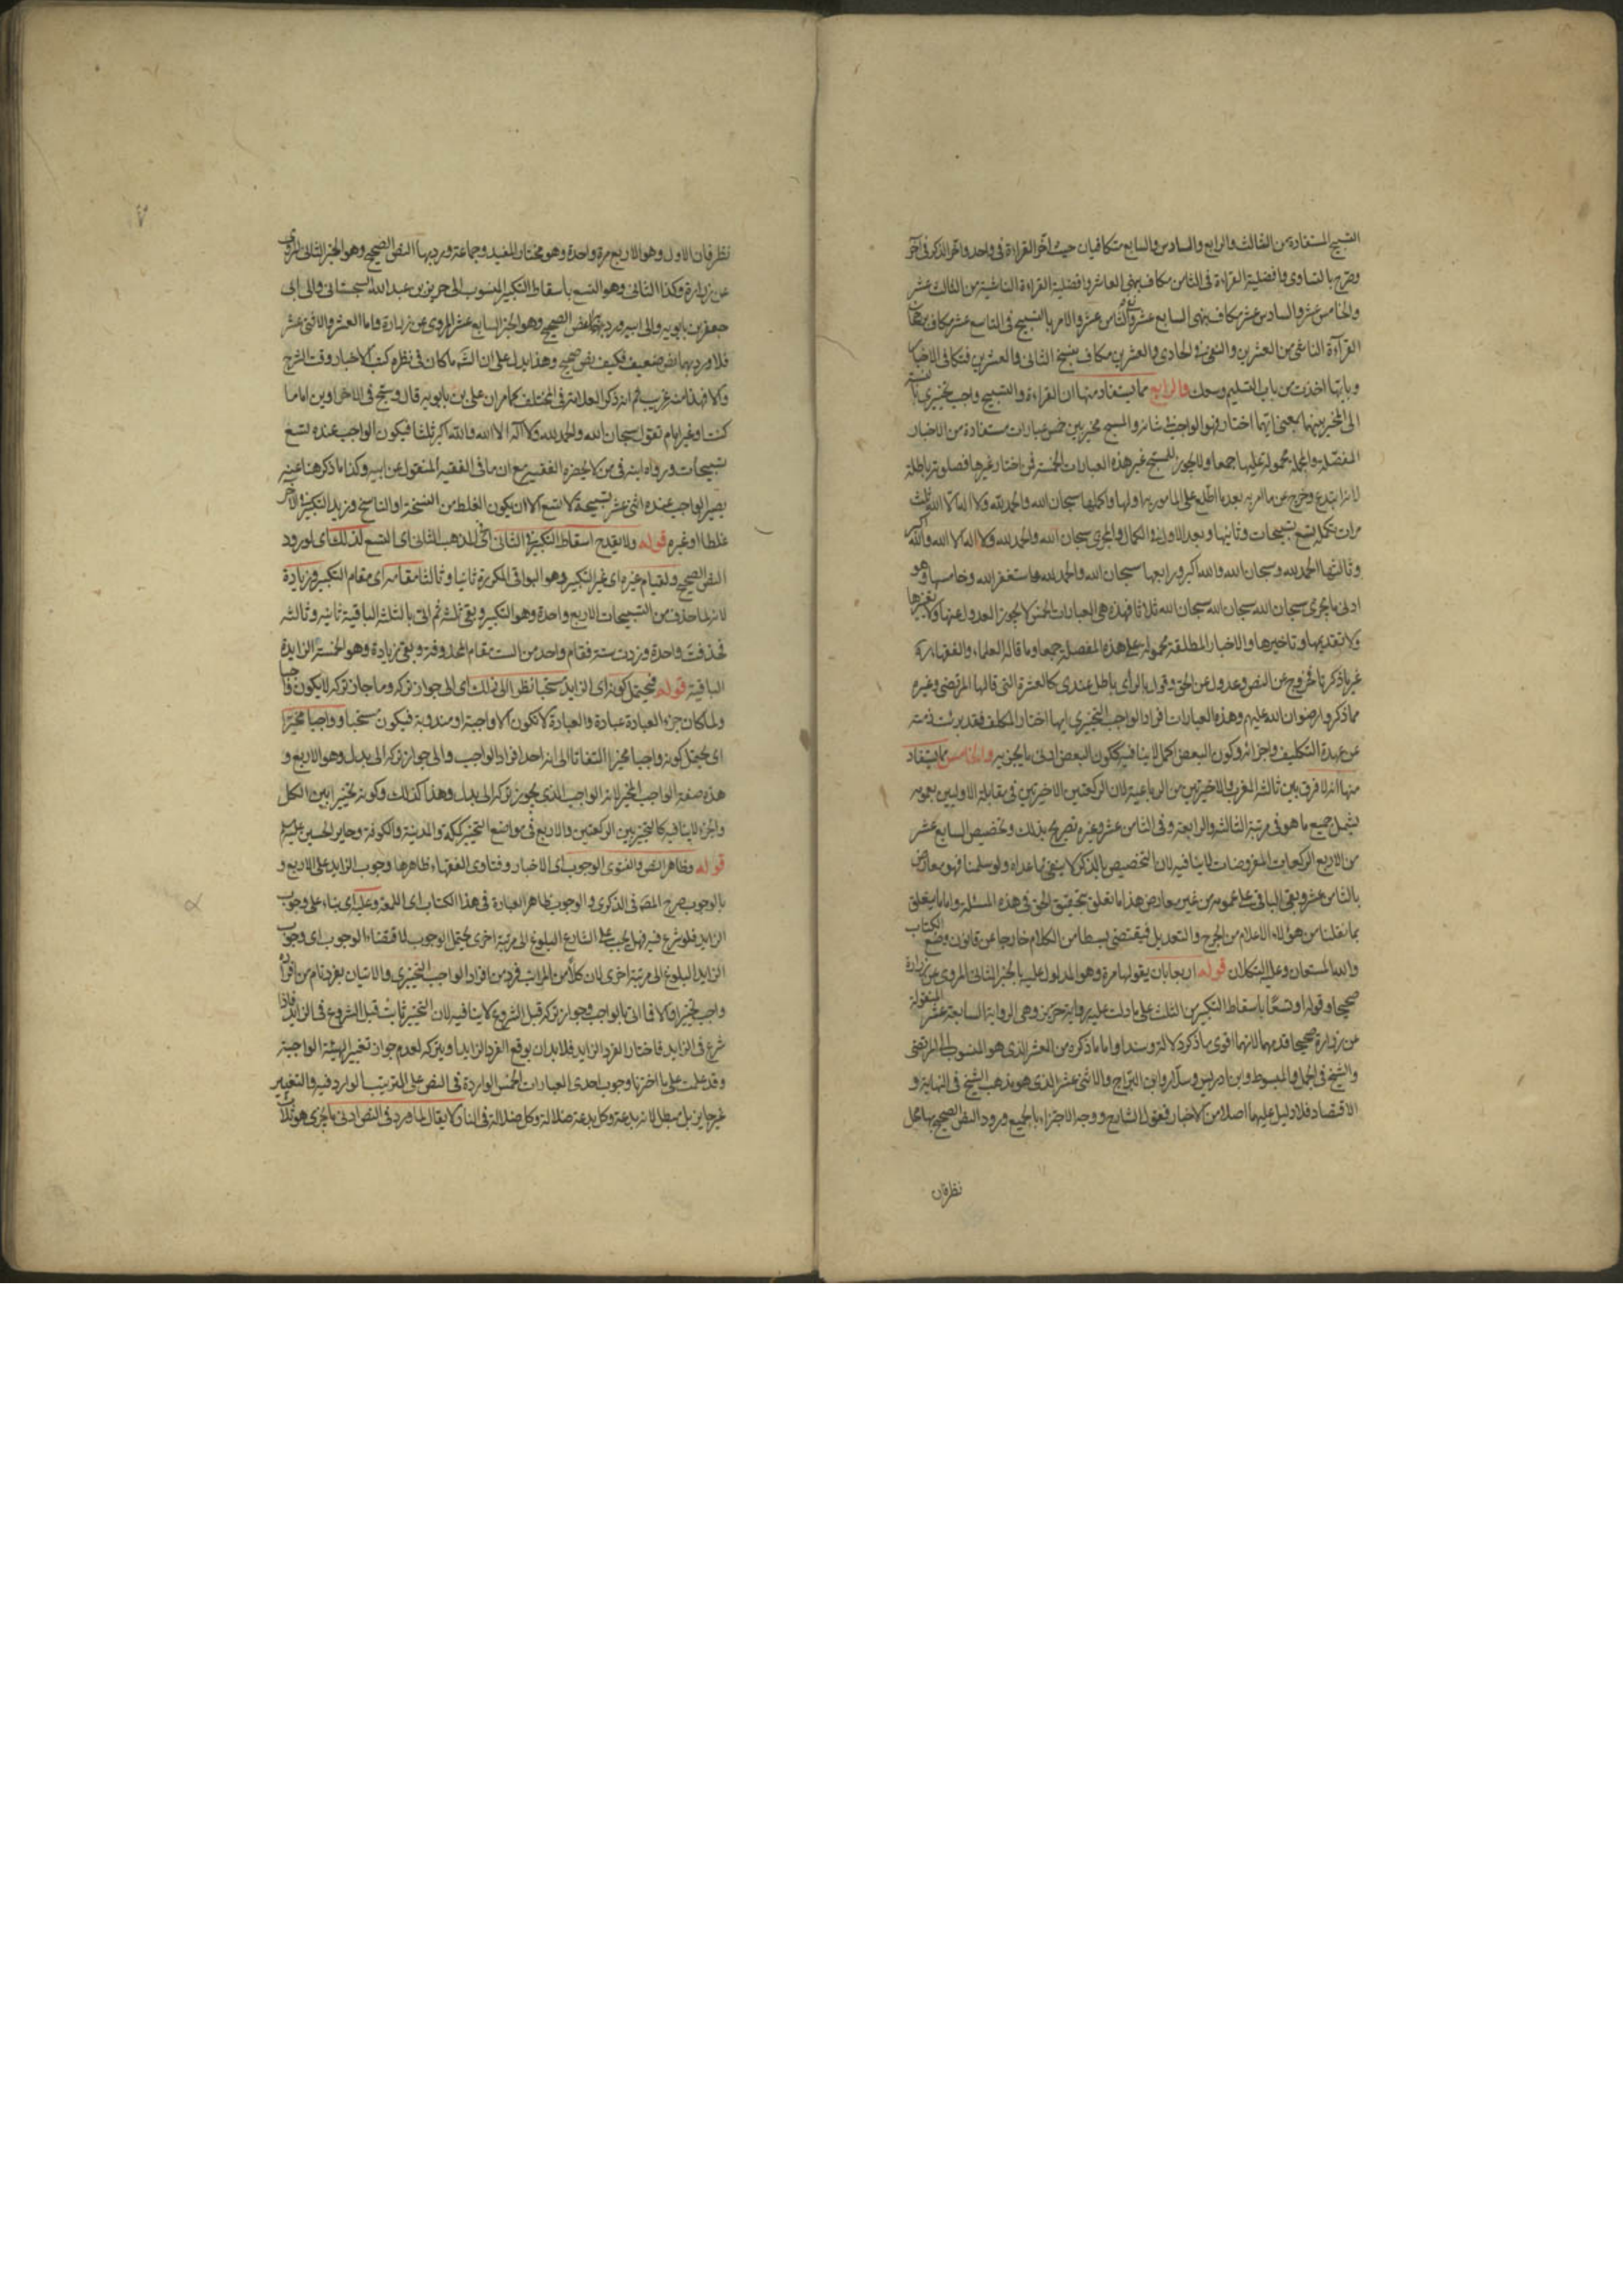 التسبيح المستفادة من الثالث والرابع والسادس والسابع متكافيان حيث اخّر القراءة في واحد واخّر الذكر في آخر
وصرّح بالتساوى وافضلية القراءة في الثامن مكاف بنهى العاشر وافضلية القراءة الناشية من الثالث عشر
والخامس عشر والسادس عشر مكاف بنهى السابع عشر والثامن عشر والامر بالتسبيح في التاسع عشر مكاف
القراءة الناشى من العشرين والنهى في الحادى والعشرين مكاف بنسخ الثانى والعشرين فتكافى الاخبار
وبايها اخذت من باب التسليم وسعك والرابع مما يستفاد منها ان القراءة والتسبيح واجب تخييرى بالنسبة
الى المخير بينهما بمعنى ايهما اختار فهو الواجب في شانه والمسبح مخير بين خمس عبارات مستفادة من الاخبار
المفصلة والجملة محمولة عليها جمعا ولا يجوز للمسبح غير هذه العبارات الخمسة فمن اختار غيرها فصلوته باطلة
لانه ابتدع وخرج عن ما امر به بعد ما اطلع على المامور بها واولها واكملها سبحان الله والحمد لله ولا اله الا الله ثلث
مرات تكمله تسع تسبيحات وثانيها وبعد الاول في الكمال والمجرى سبحان الله والحمد لله ولا اله الا الله والله اكبر
وثالثها الحمد لله وسبحان الله والله اكبر ورابعها سبحان الله والحمد لله استغفر الله وخامسها وهو
ادنى ما يجزى سبحان الله سبحان الله سبحان الله ثلاثا فهذه هى العبارات الخمس لا يجوز العدول عنها ولا تغيرها
ولا تقديمها وتاخيرها والاخبار المطلقة محمولة على هذه المفصلة جمعا وما قاله العلماء والفقهاء
غير ما ذكرنا خروج عن النص وعدول عن الحق وقول بالراى باطل عندى كالعشرة التى قالها المرتضى وغيره
مما ذكر وا رضوان الله عليهم وهذه العبارات افراد الواجب التخييرى ايها اختار المكلف فقد برئت ذمته
عن عهدة التكليف واجزائه وكون البعض اكمل لا ينافيه ككون البعض ادنى ما يجزيه والخامس مما يستفاد
منها انه لا فرق بين ثالثة المغرب والاخيرتين من الرباعية لان الركعتين الاخيرتين في مقابلة الاوليين بعمومه
يشمل جميع ما هو في مرتبة الثالثة والرابعة وفى الثامن عشر وغيره تصريح بذلك وتخصيص السابع عشر
من الاربع الركعات المفروضات لا ينافيه لان التخصيص بالذكر لا ينفى ما عداه ولو سلمنا فهو معارض
بالثامن عشر وبقى الباقى على عمومه من غير معارض هذا ما تعلق بتحقيق الحق في هذه المسئلة واما ما يتعلق
بما نقلنا من هؤلاء الاعلام من الجرح والتعديل فيقتضى بسطا من الكلام خارجا عن قانون وضع الكتاب
والله المستعان وعليه التكلان قوله اربعا بان يقولها مرة وهو المدلول عليه بالخبر الثانى المروى عن زرارة
صحيحا وقوله او تسعا باسقاط التكبير من الثلث على ما دلت عليه رواية حريز وهى الرواية السابعة عشر المنقولة
عن زرارة صحيحا قدمهما لانهما اقوى ما ذكره دلالة وسندا واما ما ذكره من العشر الذى هو المنسوب الى المرتضى
والشيخ في الجمل والمبسوط وابن ادريس وسلار وابن البراج والاثنى عشر الذى هو مذهب الشيخ في النهاية و
الاقتصاد فلا دليل عليهما اصلا من الاخبار فقول الشارح ووجه الاجتزاء بالجميع ورود النص الصحيح بها محل
نظر فان
نظر فان الاول وهو الاربع مرة واحدة وهو مختار المفيد وجماعة ورد بها النص الصحيح وهو الخبر الثانى المروى
عن زرارة وكذا الثانى وهو التسع باسقاط التكبير المنسوب الى حريز بن عبد الله السجستانى والى ابى
جعفر بن بابويه والى ابيه ورد بهما النص الصحيح وهو الخبر السابع عشر المروى عن زرارة واما العشر والاثنى عشر
فلا ورد بهما نص ضعيف فكيف نص صحيح وهذا يدل على ان الشه ما كان في نظره كتب الاخبار وقت الشرح
والا فهذا منه غريب ثم انه ذكر العلامة في المختلف كما مر ان على بن بابويه قال وسبح في الاخراوين اماما
كنت او غير امام تقول سبحان الله والحمد لله ولا اله الا الله والله اكبر ثلثا فيكون الواجب عنده تسع
تسبيحات ورواه ابنه في من لا يحضره الفقيه مع ان ما في الفقيه المنقول عن ابيه وكذا ما ذكرهنا عنه
يصير الواجب عنده اثنى عشر تسبيحة لا تسع الا ان يكون الغلط من النسخة او الناسخ ومزيد التكبير في الاخر
غلطا او غيره قوله ولا يقدح اسقاط التكبير في الثانى اى في المذهب الثانى اى التسع لذلك اى لورود
النص الصحيح ولقيام غيره اى غير التكبير وهو البواقى المكررة ثانيا وثالثا مقامه اى مقام التكبير وزيادة
لانه لما حذف من التسبيحات الاربع واحدة وهو التكبير وبقى ثلثة ثم اتى بالثلث الباقية ثانية وثالثة
فحذفت واحدة وزيدت ستة فقام واحد من الست مقام المحذوفة وبقى زيادة وهو الخمسة الزايدة
الباقية قوله فيحتمل كونه اى الزايد مستحبا نظرا الى ذلك اى الى جواز تركه وما جاز تركه لا يكون واجبا
ولما كان جزء العبادة عبادة والعبادة لا تكون الا واجبة او مندوبة فيكون مستحبا وواجبا مخيرا
اى يحتمل كونه واجبا مخيرا التفاتا الى انه احد افراد الواجب والى جواز تركه الى بدل وهو الاربع و
هذه صفة الواجب المخير لانه الواجب الذى يجوز تركه الى بدل وهذا كذلك وكونه تخييرا بين الكل
والجزء لا ينافيه كالتخيير بين الركعتين والاربع في مواضع التخيير كمكة والمدينة والكوفة وحاير الحسين عليه السلم
قوله وظاهر النص والفتوى الوجوب اى الاخبار وفتاوى الفقهاء ظاهرها وجوب الزايد على الاربع و
بالوجوب صرح المصّ في الذكرى والوجوب ظاهر العبارة في هذا الكتاب اى اللمعة وعليه اى بناء على وجوب
الزايد فلو شرع فيه فهل يجب على الشارع البلوغ الى مرتبة اخرى يحتمل الوجوب لاقتضاء الوجوب اى وجوب
الزايد البلوغ الى مرتبة اخرى لان كلا من المراتب فرد من افراد الواجب التخييرى والاتيان بفرد تام من افراد
واجب تخييرا والا فما اتى بالواجب وجواز تركه قبل الشروع لا ينافيه لان التخيير ثابت قبل الشروع في الزايد فاذا
شرع في الزايد فاختار الفرد الزايد فلابد ان يوقع الفرد الزايد او يتركه لعدم جواز تغيير الهيئة الواجبة
وقد علمت على ما اخترنا وجوب احدى العبارات الخمس الواردة في النص على الترتيب الوارد فيه والتغيير
غير جايز بل مبطل لانه بدعة وكل بدعة ضلالة وكل ضلالة في النار لا يقال لما ورد في النص ادنى ما يجزى هو ثلاث